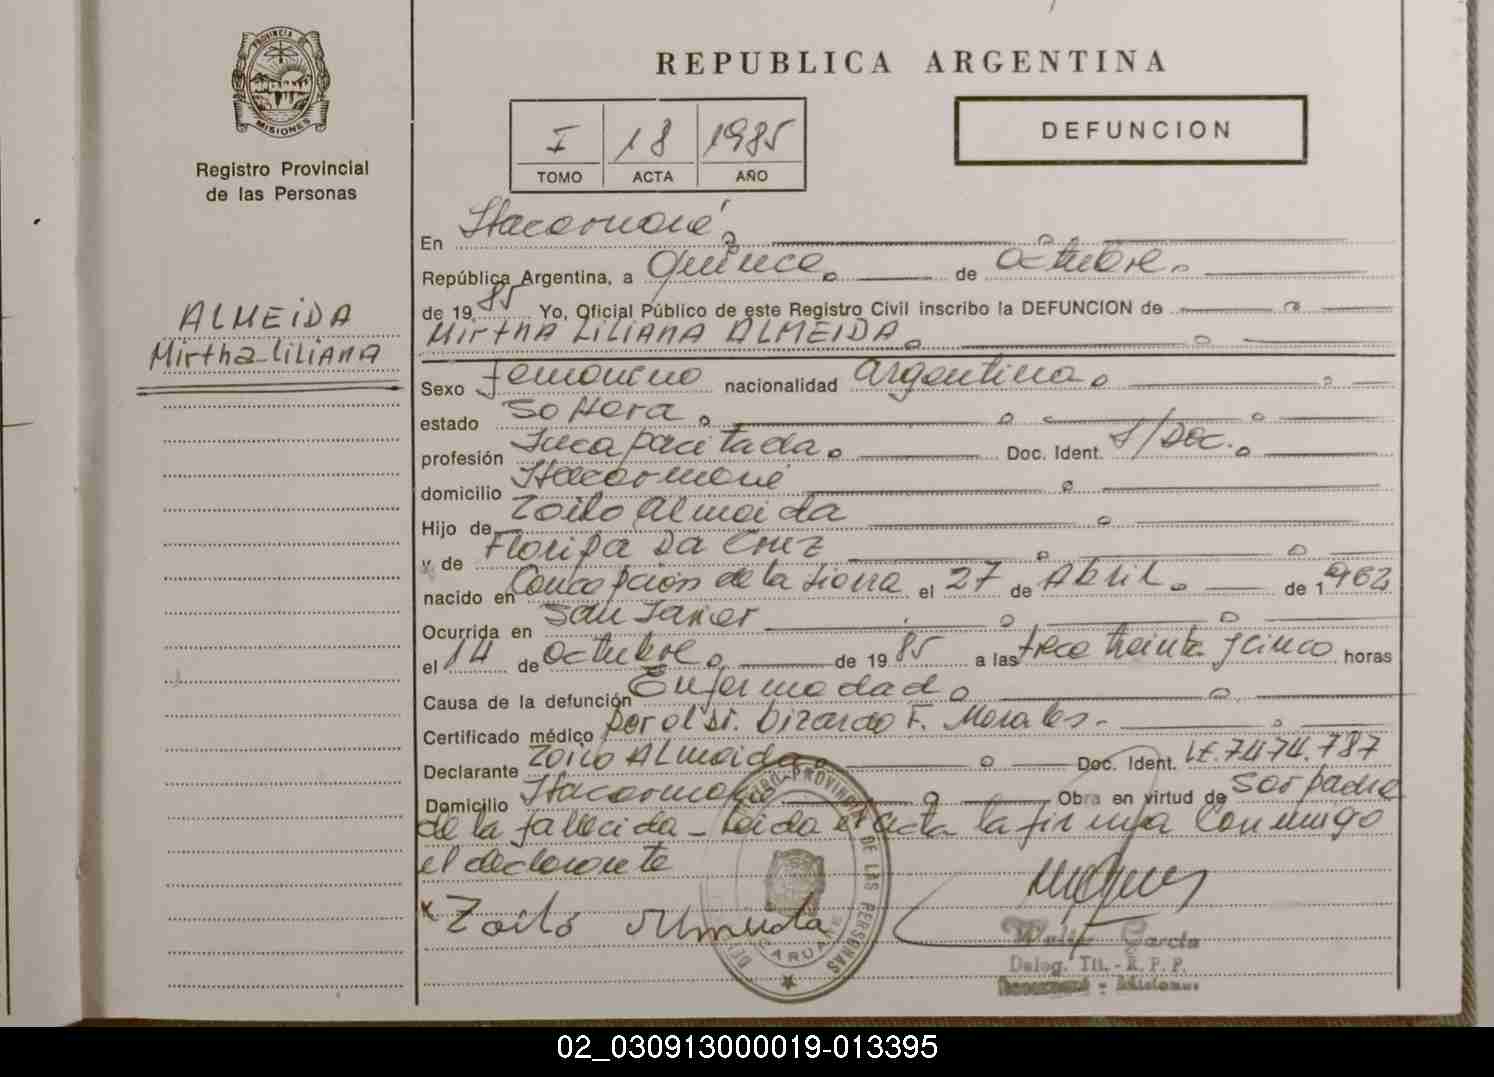 PROVINCIA DE
MISIONES
Registro Provincial
de las Personas
ALMEiDA
Mirtha LiLiANA
REPUBLICA ARGENTINA
I 18 1985
TOMO ACTA AÑO
DEFUNCION
En Itacaruaré
República Argentina, a quince de octubre
de 1985 Yo, Oficial Público de este Registro Civil inscribo la DEFUNCION de
MirtHA LiLiANA ALMEiDA
Sexo femenino nacionalidad argentina
estado soltera
profesión Incapacitada Doc. Ident. S/Doc.
domicilio Itacaruaré
Hijo de Zoilo Almeida
y de Floripa Da Cruz
nacido en Concepción de la Sierra el 27 de Abril de 1962
Ocurrida en San Javier
el 14 de octubre de 1985 a las trece treinta y cinco horas
Causa de la defunción Enfermedad
Certificado médico por el dr. Lizardo F. Morales
Declarante Zoilo Almeida Doc. Ident. LE.7474.787
Domicilio Itacaruaré Obra en virtud de ser padre
de la fallecida - Leida el acta la firma conmigo
el declarante
x Zoilo Almeida
REGISTRO PROVINCIAL DE LAS PERSONAS
Garcia
Deleg. Tit. - R. P. P.
- Misiones
02_030913000019-013395